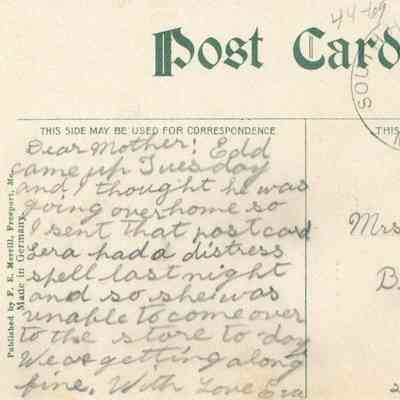 44-69
Post Card
SOU
THIS SIDE MAY BE USED FOR CORRESPONDENCE
THIS
Dear Mother! Edd
came up Tuesday
and I thought he was
going over home so
I sent that post card
Lera had a distress
spell last night
and so she was
unable to come over
to the store to day
We are getting along
fine. With Love Era
Mrs
B
Published by F. E. Merrill, Freeport, Me.
Made in Germany.